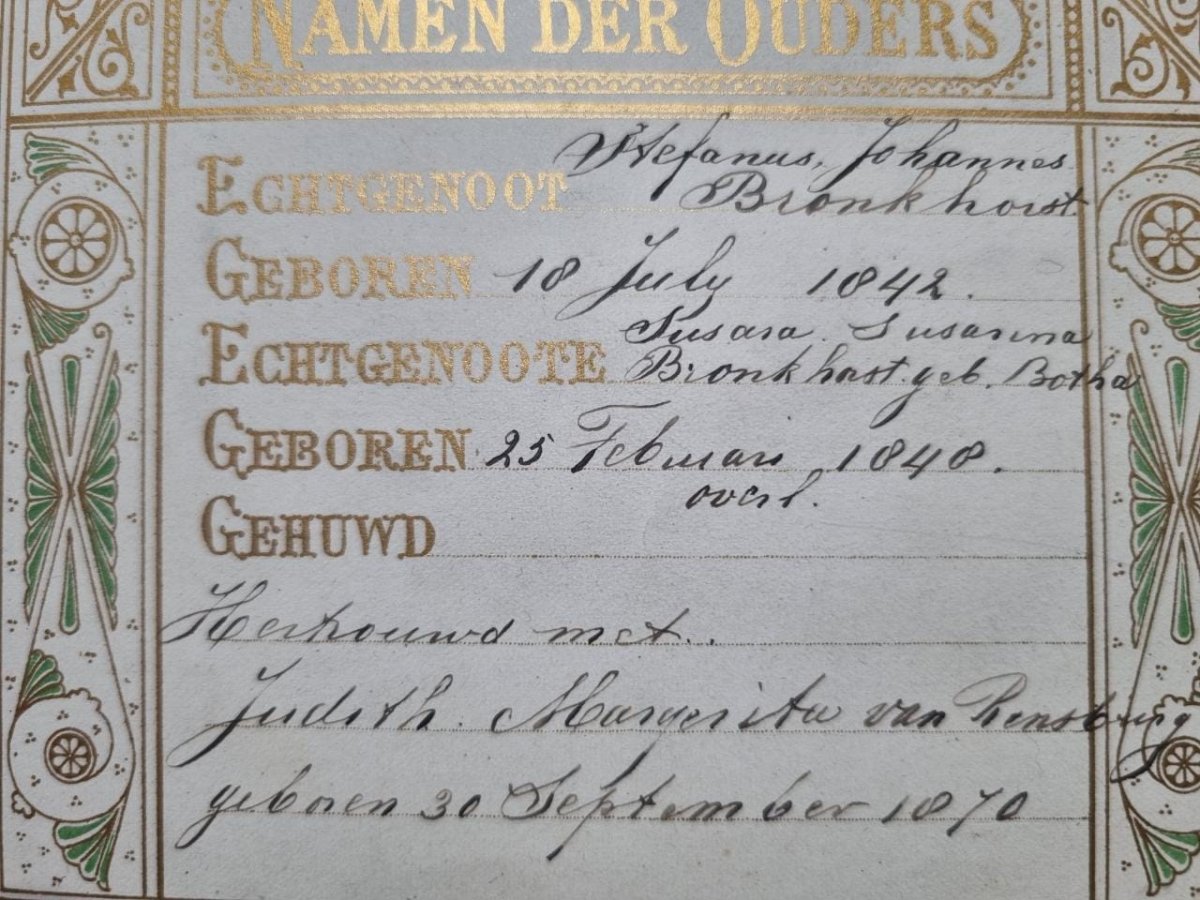 NAMEN DER OUDERS
Stefanus, Johannes
ECHTGENOOT Bronkhorst
GEBOREN 18 July 1842.
Susara. Susanna
ECHTGENOOTE Bronkhorst. geb. Botha
GEBOREN 25 Februari 1848.
overl.
GEHUWD
Hertrouwd met.
Judith. Margerita van Rensburg
geboren 30 September 1870